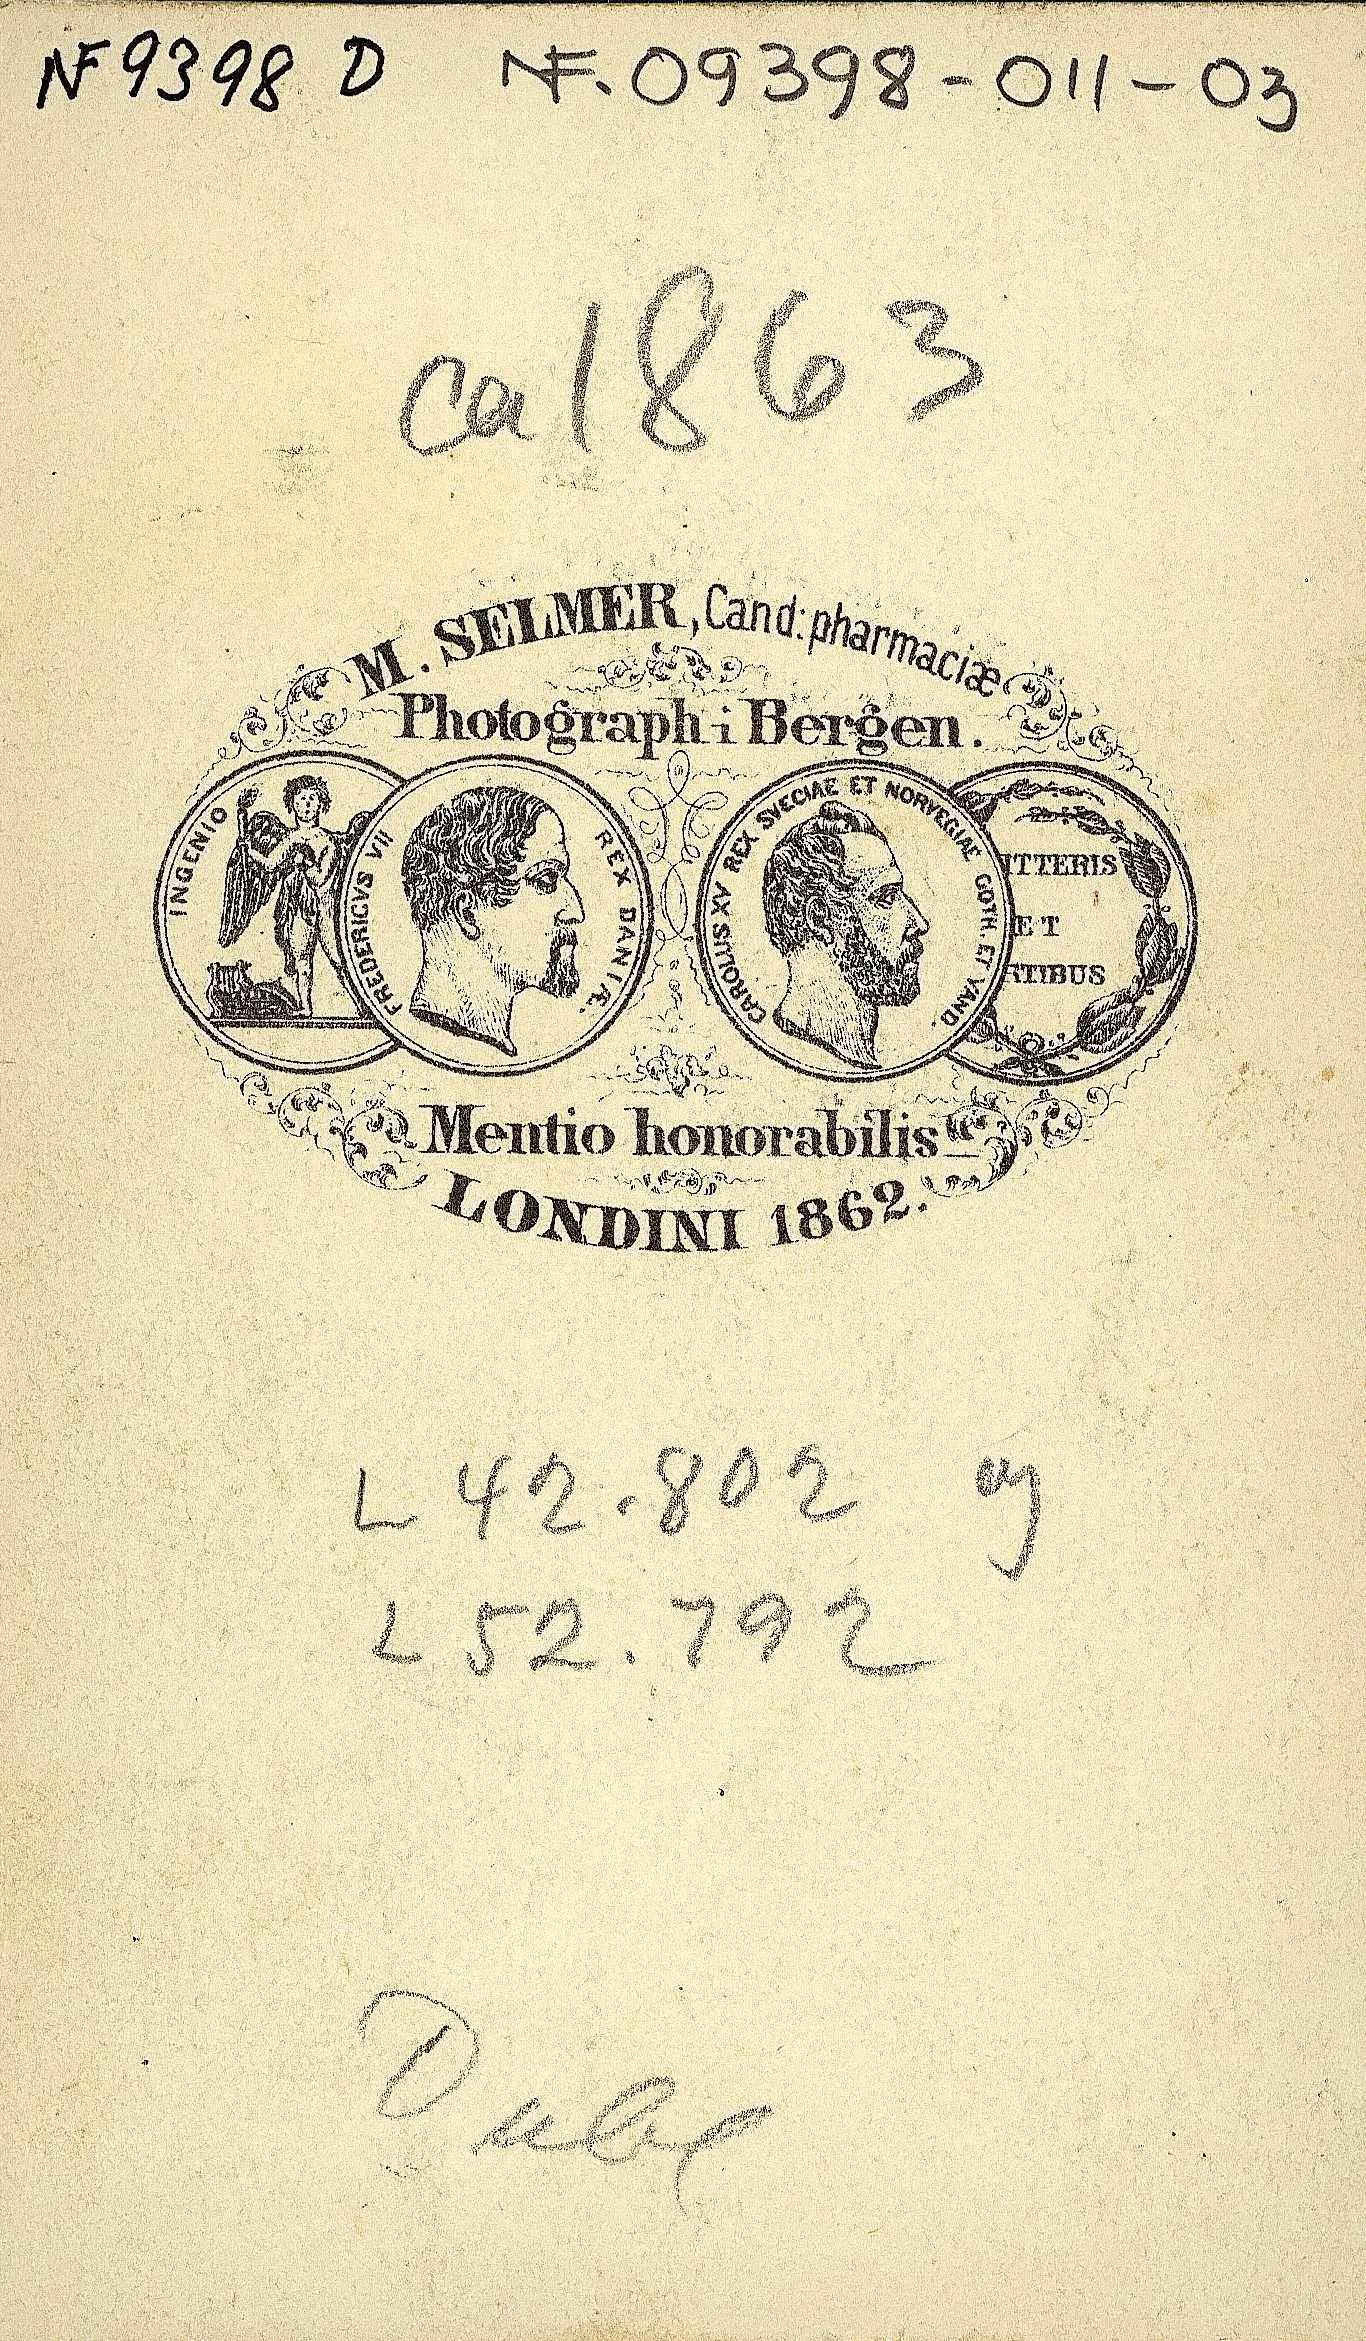 NF 9398 D NF. 09398-011-03
ca 1863
M. SELMER, Cand: pharmaciæ
Photograph i Bergen.
INGENIO
FREDERICVS VII REX DANIÆ.
CAROLUS XV REX SVECIAE ET NORVEGIAE GOTH. ET VAND.
ITTERIS
ET
RTIBUS
Mentio honorabilis
LONDINI 1862.
L 42.802 og
L 52.792